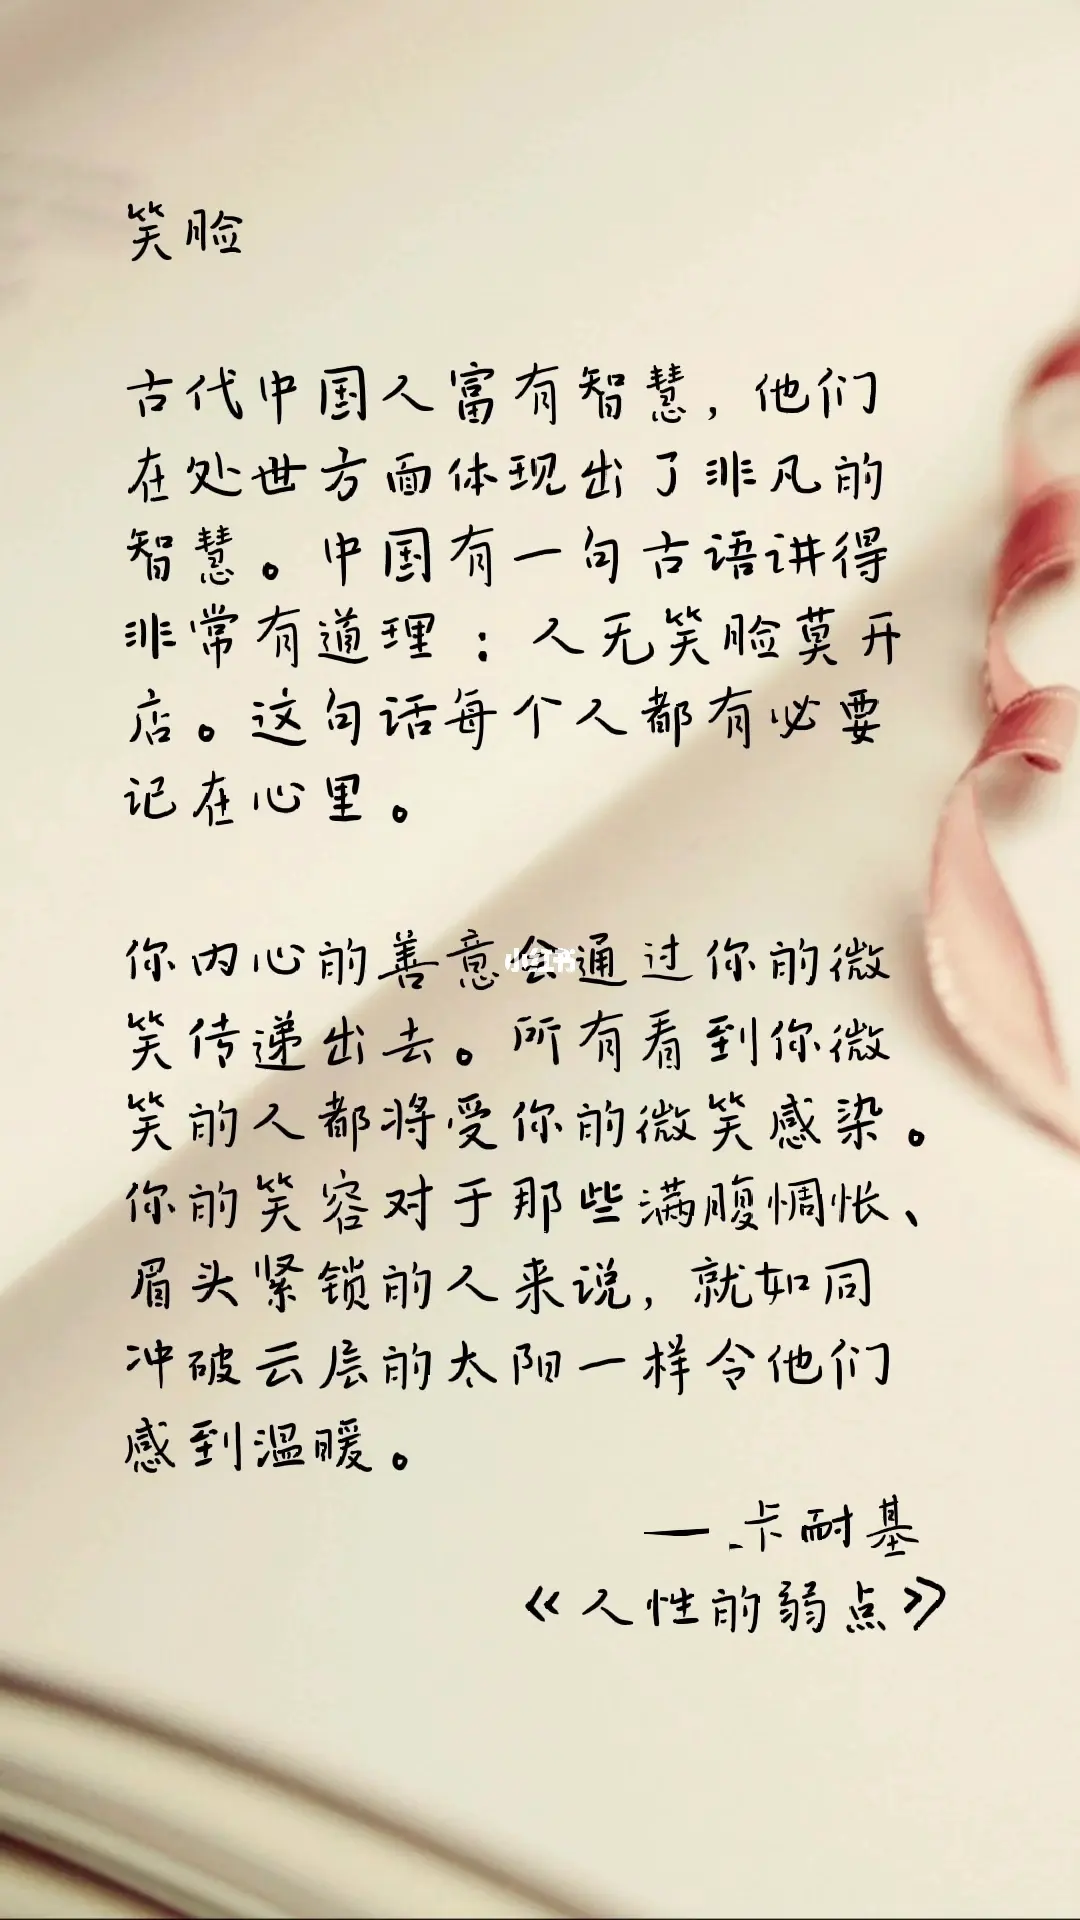 笑脸
古代中国人富有智慧，他们
在处世方面体现出了非凡的
智慧。中国有一句古语讲得
非常有道理：人无笑脸莫开
店。这句话每个人都有必要
记在心里。
你内心的善意会通过你的微
笑传递出去。所有看到你微
笑的人都将受你的微笑感染。
你的笑容对于那些满腹惆怅、
眉头紧锁的人来说，就如同
冲破云层的太阳一样令他们
感到温暖。
——卡耐基
《人性的弱点》
小红书